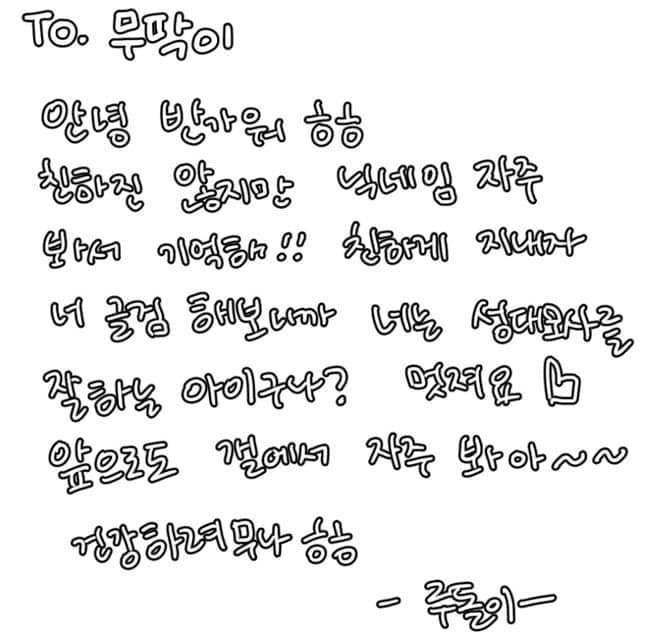 To. 무딱이
안녕 반가워 ㅎㅎ
친하진 않지만 닉네임 자주
봐서 기억해!! 친하게 지내자
너 글검 해보니까 너는 성대모사를
잘하는 아이구나? 멋져요
앞으로도 갤에서 자주 봐아~~
건강하려무나 ㅎㅎ
- 루돌이 -